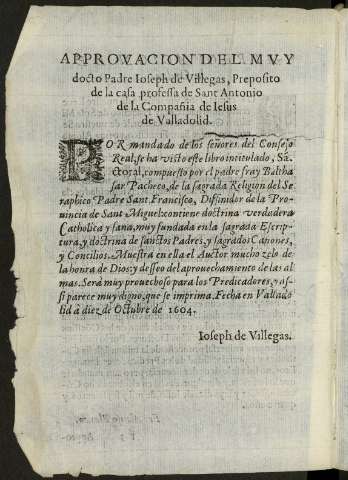 APPROVACION DEL MVY
docto Padre Ioseph de Villegas, Preposito
de la casa professa de Sant Antonio
de la Compañia de Iesus
de Valladolid.
POR mandado de los señores del Consejo
Real, se ha visto este libro intitulado, Sã-
ctoral, compuesto por el padre fray Baltha
sar Pacheco, de la sagrada Religion del Se
raphico Padre Sant Francisco, Diffinidor de la Pro-
uincia de Sant Miguel: contiene doctrina verdadera
Catholica y sana, muy fundada en la sagrada Escrip-
tura, y doctrina de sanctos Padres, y sagrados Canones,
y Concilios. Muestra en ella el Auctor mucho zelo de
la honra de Dios: y desseo del aprouechamiento de las al
mas. Será muy prouechoso para los Predicadores, y as-
si parece muy digno, que se imprima. Fecha en Vallado
lid à diez de Octubre de 1604.
Ioseph de Villegas.